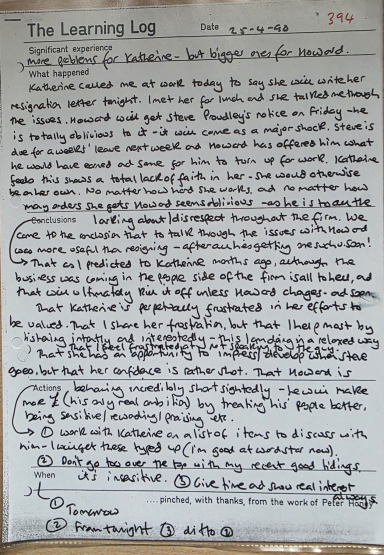 394
The Learning Log Date 25-4-90
Significant experience
more problems for Katherine - but bigger ones for Howard.
What happened
Katherine called me at work today to say she will write her
resignation letter tonight. I met her for lunch and she talked me through
the issues. Howard will get Steve Proudley's notice on Friday - he
is totally oblivious to it - it will come as a major shock. Steve is
due for a weeks' leave next week and Howard has offered him what
he would have earned and some for him to turn up for work. Katherine
feels this shows a total lack of faith in her - she would otherwise
be on her own. No matter how hard she works, and no matter how
many orders she gets Howard seems oblivious - as he is to all the
Conclusions larking about/disrespect throughout the firm. We
came to the conclusion that to talk through the issues with Howard
was more useful than resigning - after all he's getting one such soon!
→ That as I predicted to Katherine months ago, although the
business was coming in the people side of the firm is all to hell, and
that will ultimately ruin it off unless Howard changes - and soon
That Katherine is perpetually frustrated in her efforts to
be valued. That I share her frustration, but that I help most by
listening intently and interestedly - this I am doing in a relaxed way
That I feel frustrated at not speaking to the guy
That she has an opportunity to impress/develop when Steve
goes, but that her confidence is rather shot. That Howard is
Actions behaving incredibly short sightedly - he will make
more £ (his only real ambition) by treating his people better,
being sensitive/rewarding/praising etc.
→ ① work with Katherine on a list of items to discuss with
him - I will get these typed up (I'm good at wordstar now).
② Don't go too over the top with my recent good tidings,
When it's insensitive. ③ Give time and show real interest
always
.... pinched, with thanks, from the work of Peter Honey
① Tomorrow
② From tonight ③ ditto ②